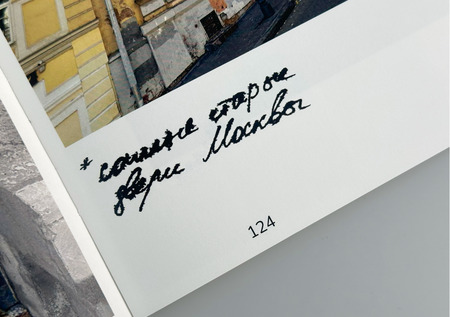 * самые старые
двери Москвы
124